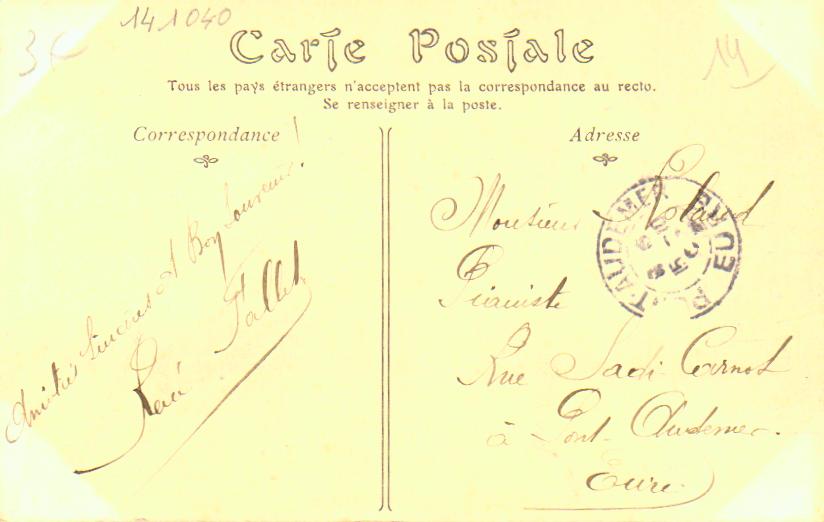 141040
14
Carte Postale
Tous les pays étrangers n'acceptent pas la correspondance au recto.
Se renseigner à la poste.
Correspondance
Amitiés Sincères et Bon Souvenir!
René Fallet
Adresse
Monsieur Roland
Pianiste
Rue Sadi-Carnot
à Pont-Audemer.
Eure
PONT-AUDEMER
EURE